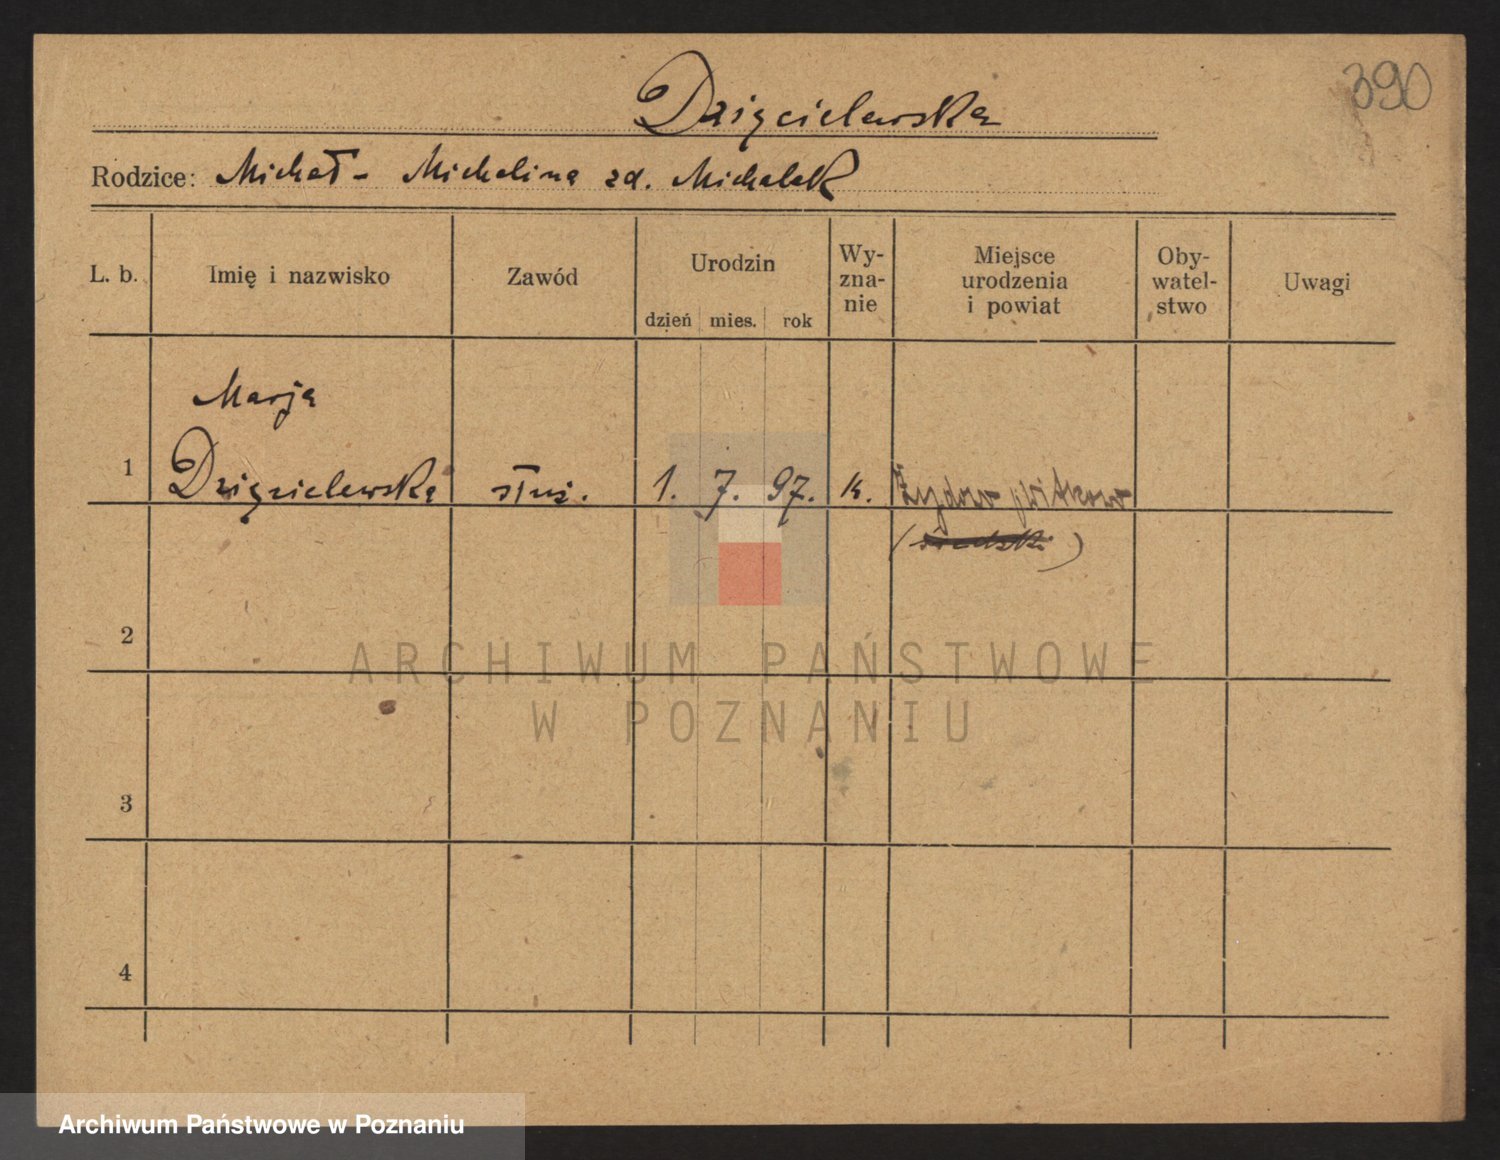 390
Dzięcielewska
Rodzice: Michał - Michalina zd. Michalak
L. b.
Imię i nazwisko
Zawód
Urodzin
dzień mies. rok
Wy-
zna-
nie
Miejsce
urodzenia
i powiat
Oby-
watel-
stwo
Uwagi
Marja
1 Dzięcielewska służ. 1. 7. 97. k. Żydowo
2
3
4
ARCHIWUM PAŃSTWOWE
W POZNANIU
Archiwum Państwowe w Poznaniu